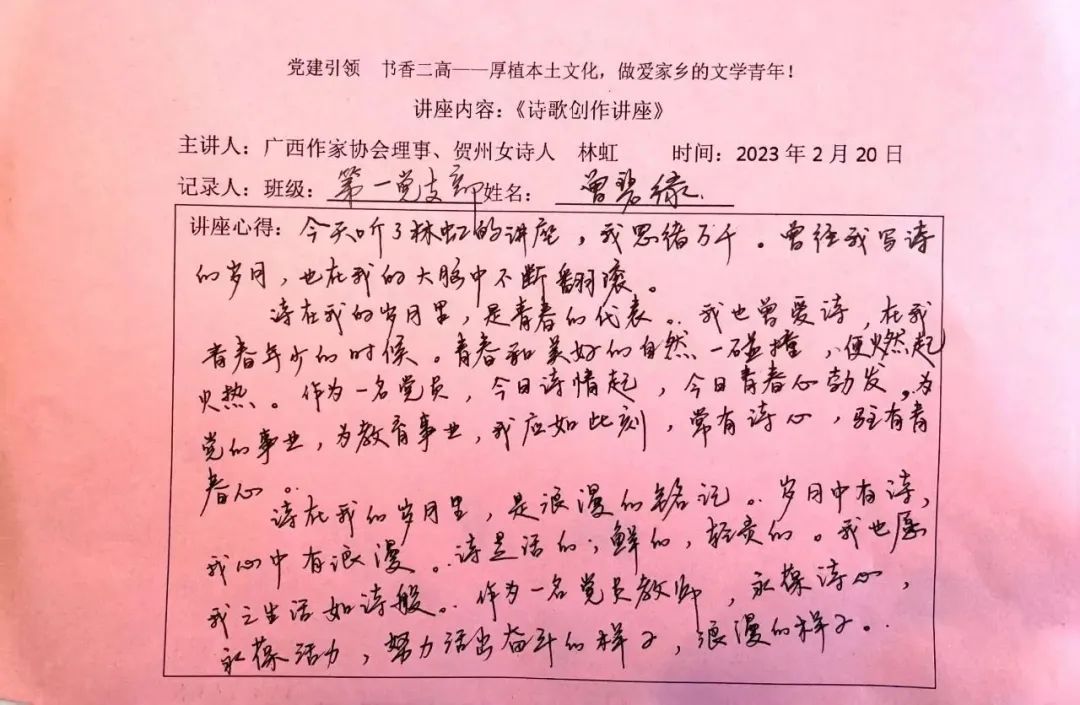 党建引领　书香二高——厚植本土文化，做爱家乡的文学青年！
讲座内容：《诗歌创作讲座》
主讲人：广西作家协会理事、贺州女诗人　林虹　　时间：2023年2月20日
记录人：班级：第一党支部 姓名：曾碧缘
讲座心得：今天听了林虹的讲座，我思绪万千。曾经我写诗
的岁月，也在我的大脑中不断翻滚。
诗在我的岁月里，是青春的代表。我也曾爱诗，在我
青春年少的时候。青春和美好的自然一碰撞，便燃起
火热。作为一名党员，今日诗情起，今日青春心勃发。为
党的事业，为教育事业，我应如此刻，常有诗心，驻有青
春心。
诗在我的岁月里，是浪漫的铭记。岁月中有诗，
我心中有浪漫。诗是活的，鲜的，轻灵的。我也愿
我之生活如诗般。作为一名党员教师，永葆诗心，
永葆活力，努力活出奋斗的样子，浪漫的样子。